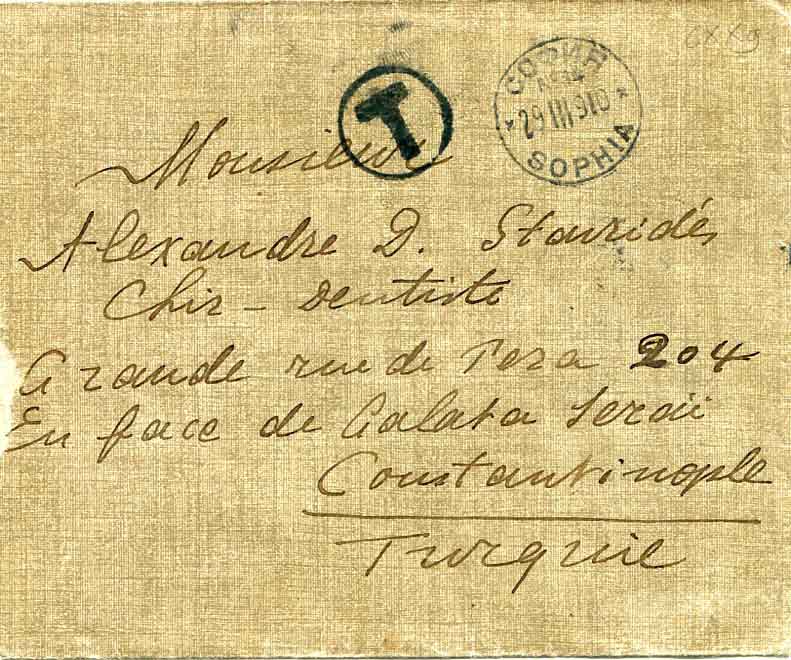 T
СОФИЯ
29 III 910
SOPHIA
Monsieur
Alexandre D. Stavridés
Chir - Dentiste
Grande rue de Pera 204
En face de Galata Seraï
Constantinople
Turquie